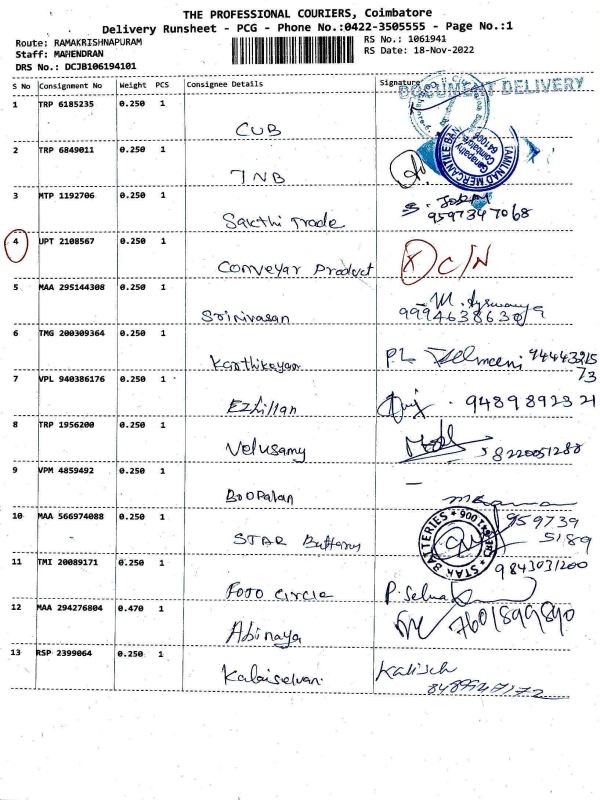 THE PROFESSIONAL COURIERS, Coimbatore
Delivery Runsheet - PCG - Phone No.:0422-3505555 - Page No.:1
Route: RAMAKRISHNAPURAM
RS No.: 1061941
Staff: MAHENDRAN
RS Date: 18-Nov-2022
DRS No.: DCJB106194101
S No Consignment No Weight PCS Consignee Details Signature
DOCUMENT DELIVERY
1 TRP 6185235 0.250 1
CUB
TAMILNAD MERCANTILE BAN
Ganapathy
Coimbatore
641006
2 TRP 6849011 0.250 1
TNB
3 MTP 1192706 0.250 1
Sakthi Trade
9597347068
4 UPT 2108567 0.250 1
Conveyar Product
X C/N
5 MAA 295144308 0.250 1
Srinivasan
9994638630
6 TMG 200309364 0.250 1
Karthikeyan
P.L 9444321573
7 VPL 940386176 0.250 1
Ezhillan
9489892321
8 TRP 1956200 0.250 1
Velusamy
8220051288
9 VPM 4859492 0.250 1
Boopalan
10 MAA 566974088 0.250 1
STAR Batterys
STAR BATTERIES
959739
5189
11 TMI 20089171 0.250 1
9843031200
Foto circle P. Selva
12 MAA 294276804 0.470 1
Abinaya
7601899890
13 RSP 2399064 0.250 1
Kalaiselvan
8489947172